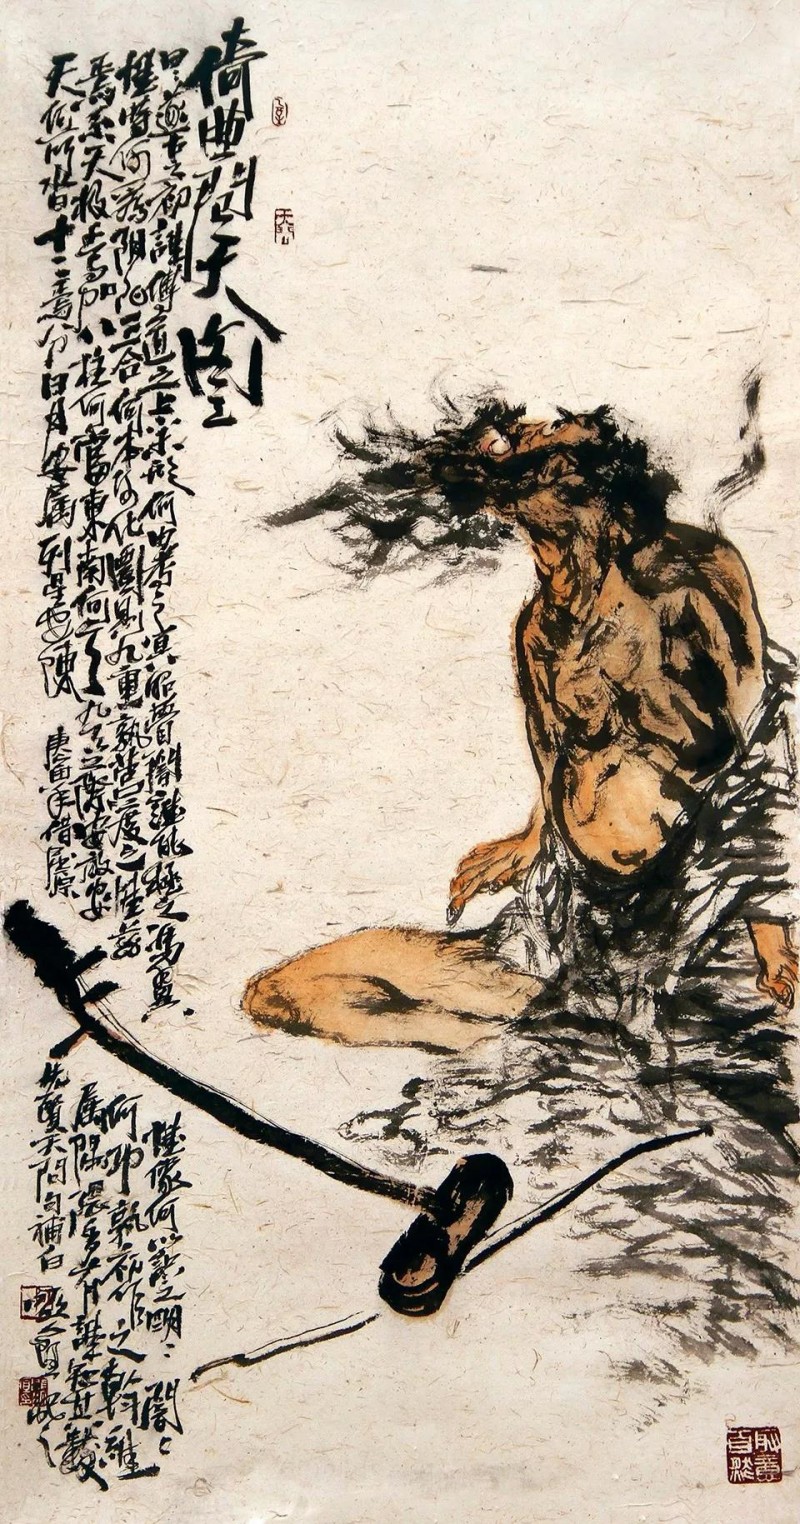 倚曲問天图
曰遂古之初誰傳道之上下未形何由考之冥昭瞢闇誰能極之馮翼
惟像何以識之明明闇闇
惟時何為陰陽三合何本何化圜則九重孰營度之惟茲
何功孰初作之斡維
焉系天極焉加八柱何當東南何虧九天之際安放安
屬隅隈多有誰知其數
天何所沓十二焉分日月安屬列星安陳 庚寅年借屈原
先賢天問句補白